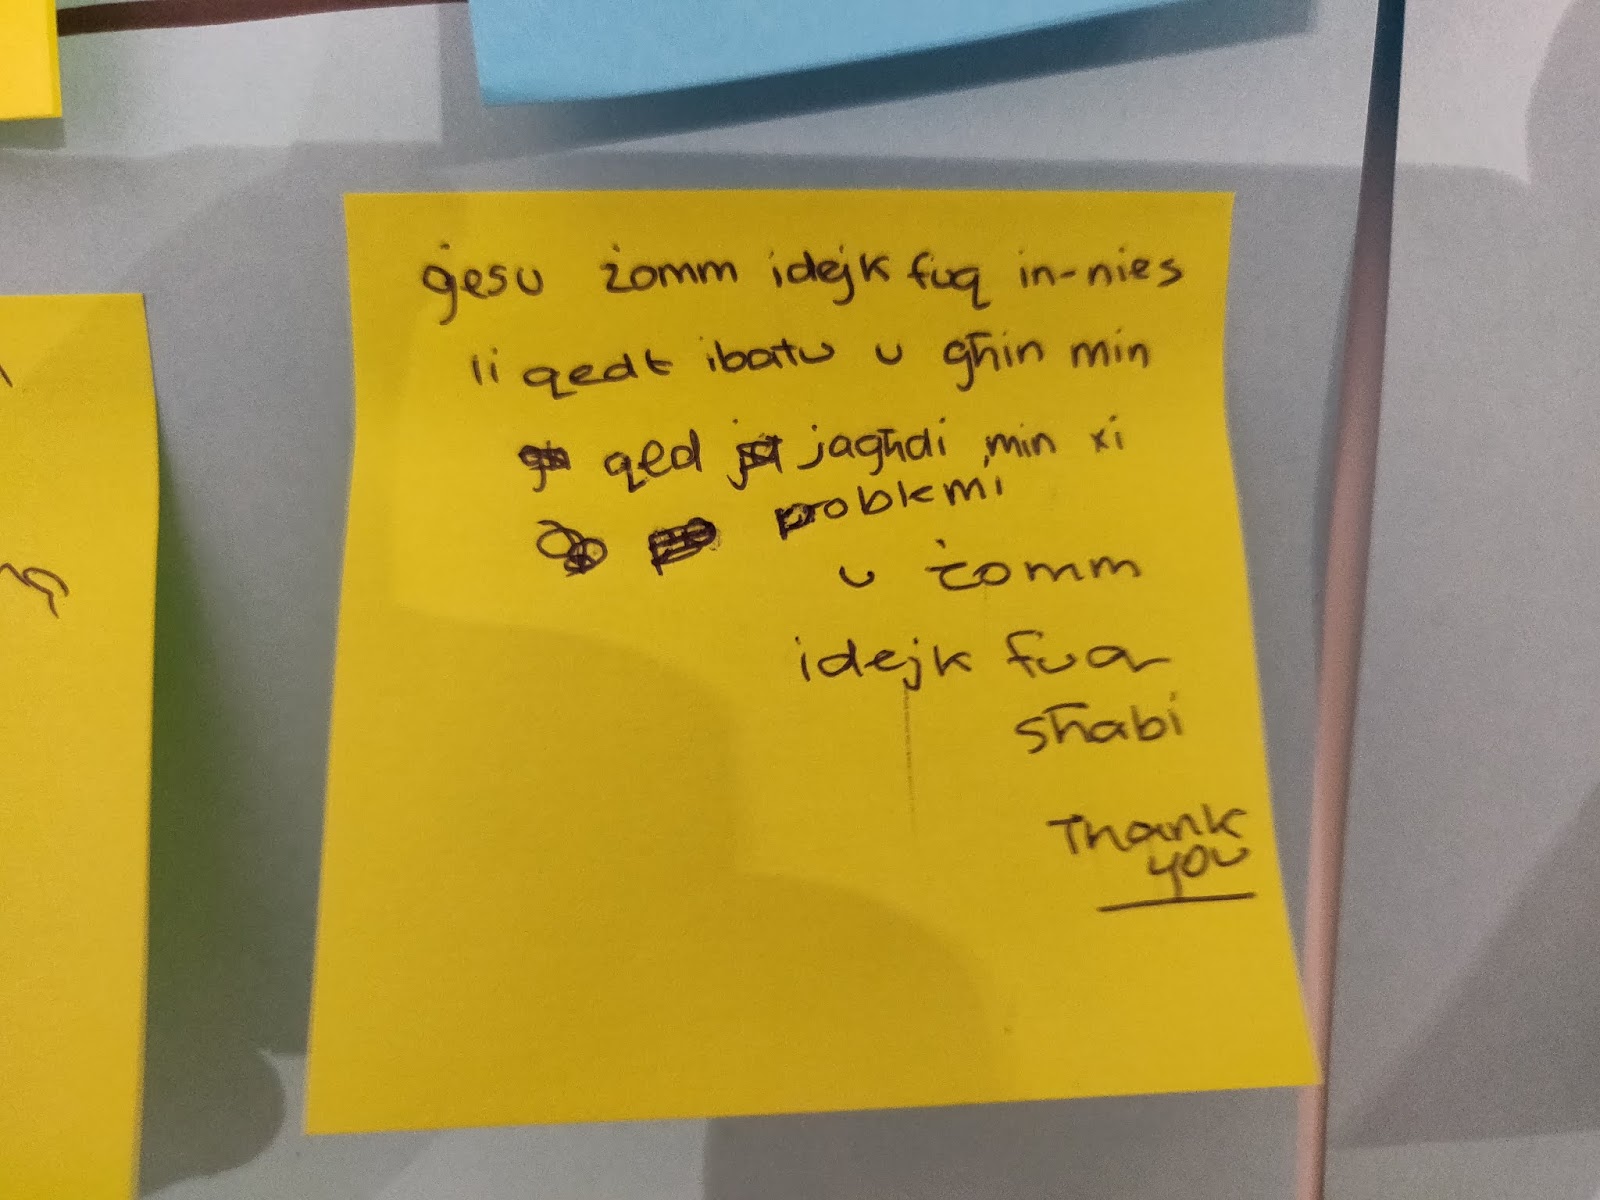 ġesu żomm idejk fuq in-nies
li qedt ibatu u għin min
qed jagħdi min xi
problemi
u żomm
idejk fuq
sħabi
Thank
you